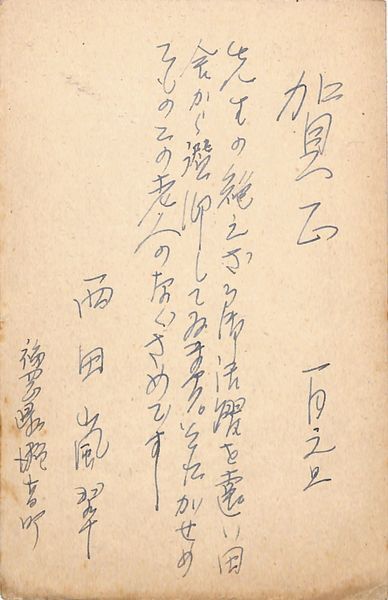 賀正
一月元旦
先生の絶えざる御活躍を遠い田
舎から遥拝して居ます。それがせめ
てものこの老人のなぐさめです
西田嵐翠
福岡県 町